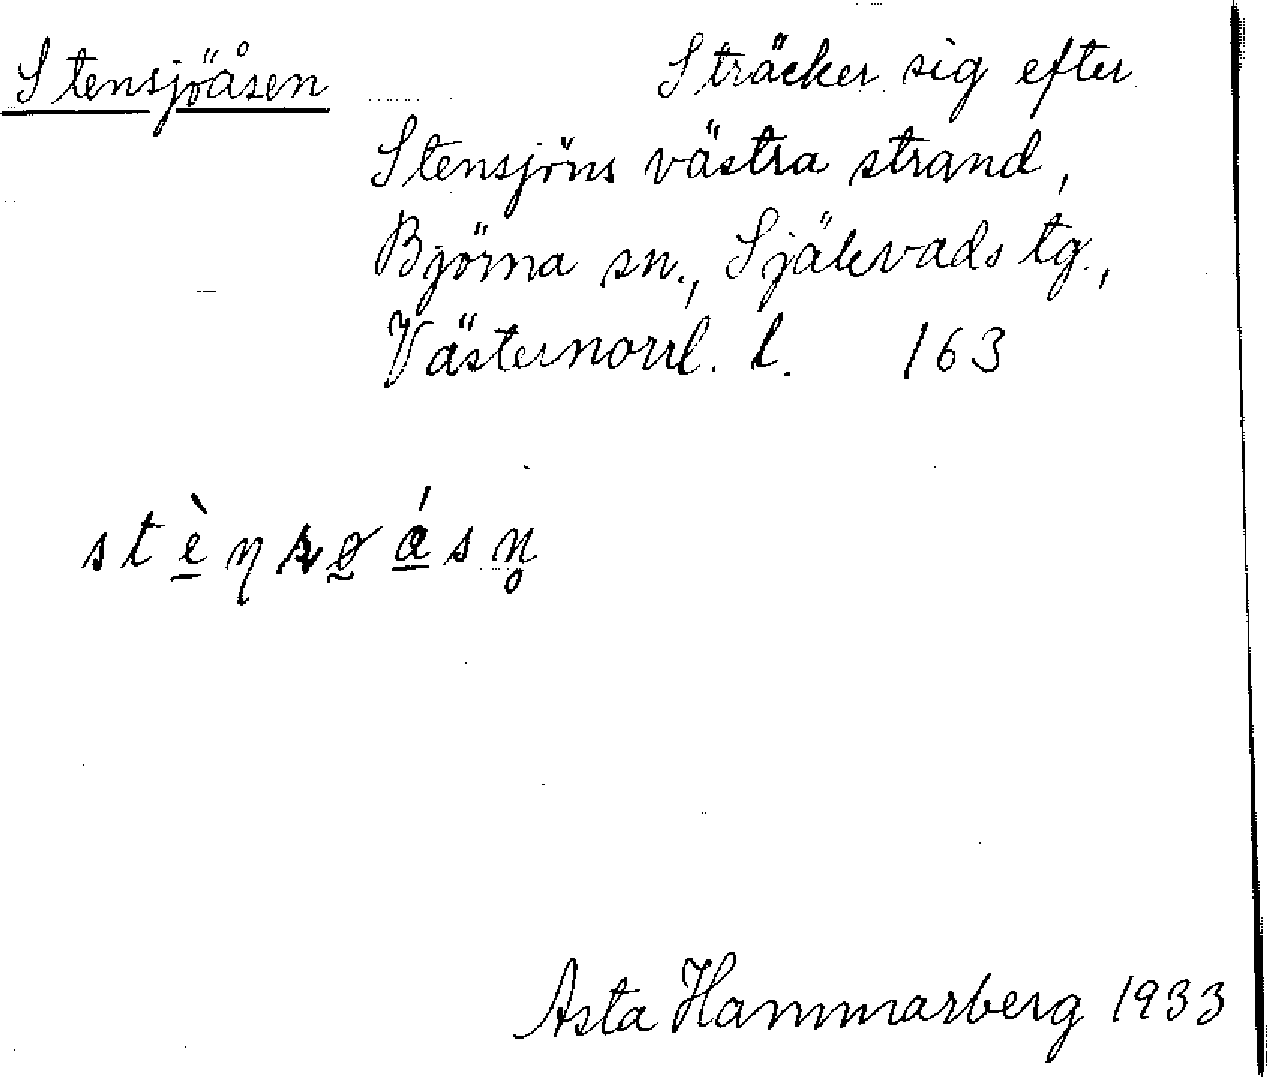 Stensjöåsen Sträcker sig efter
Stensjöns västra strand,
Björna sn., Själevads tg.,
Västernorrl. l. 163
Asta Hammarberg 1933